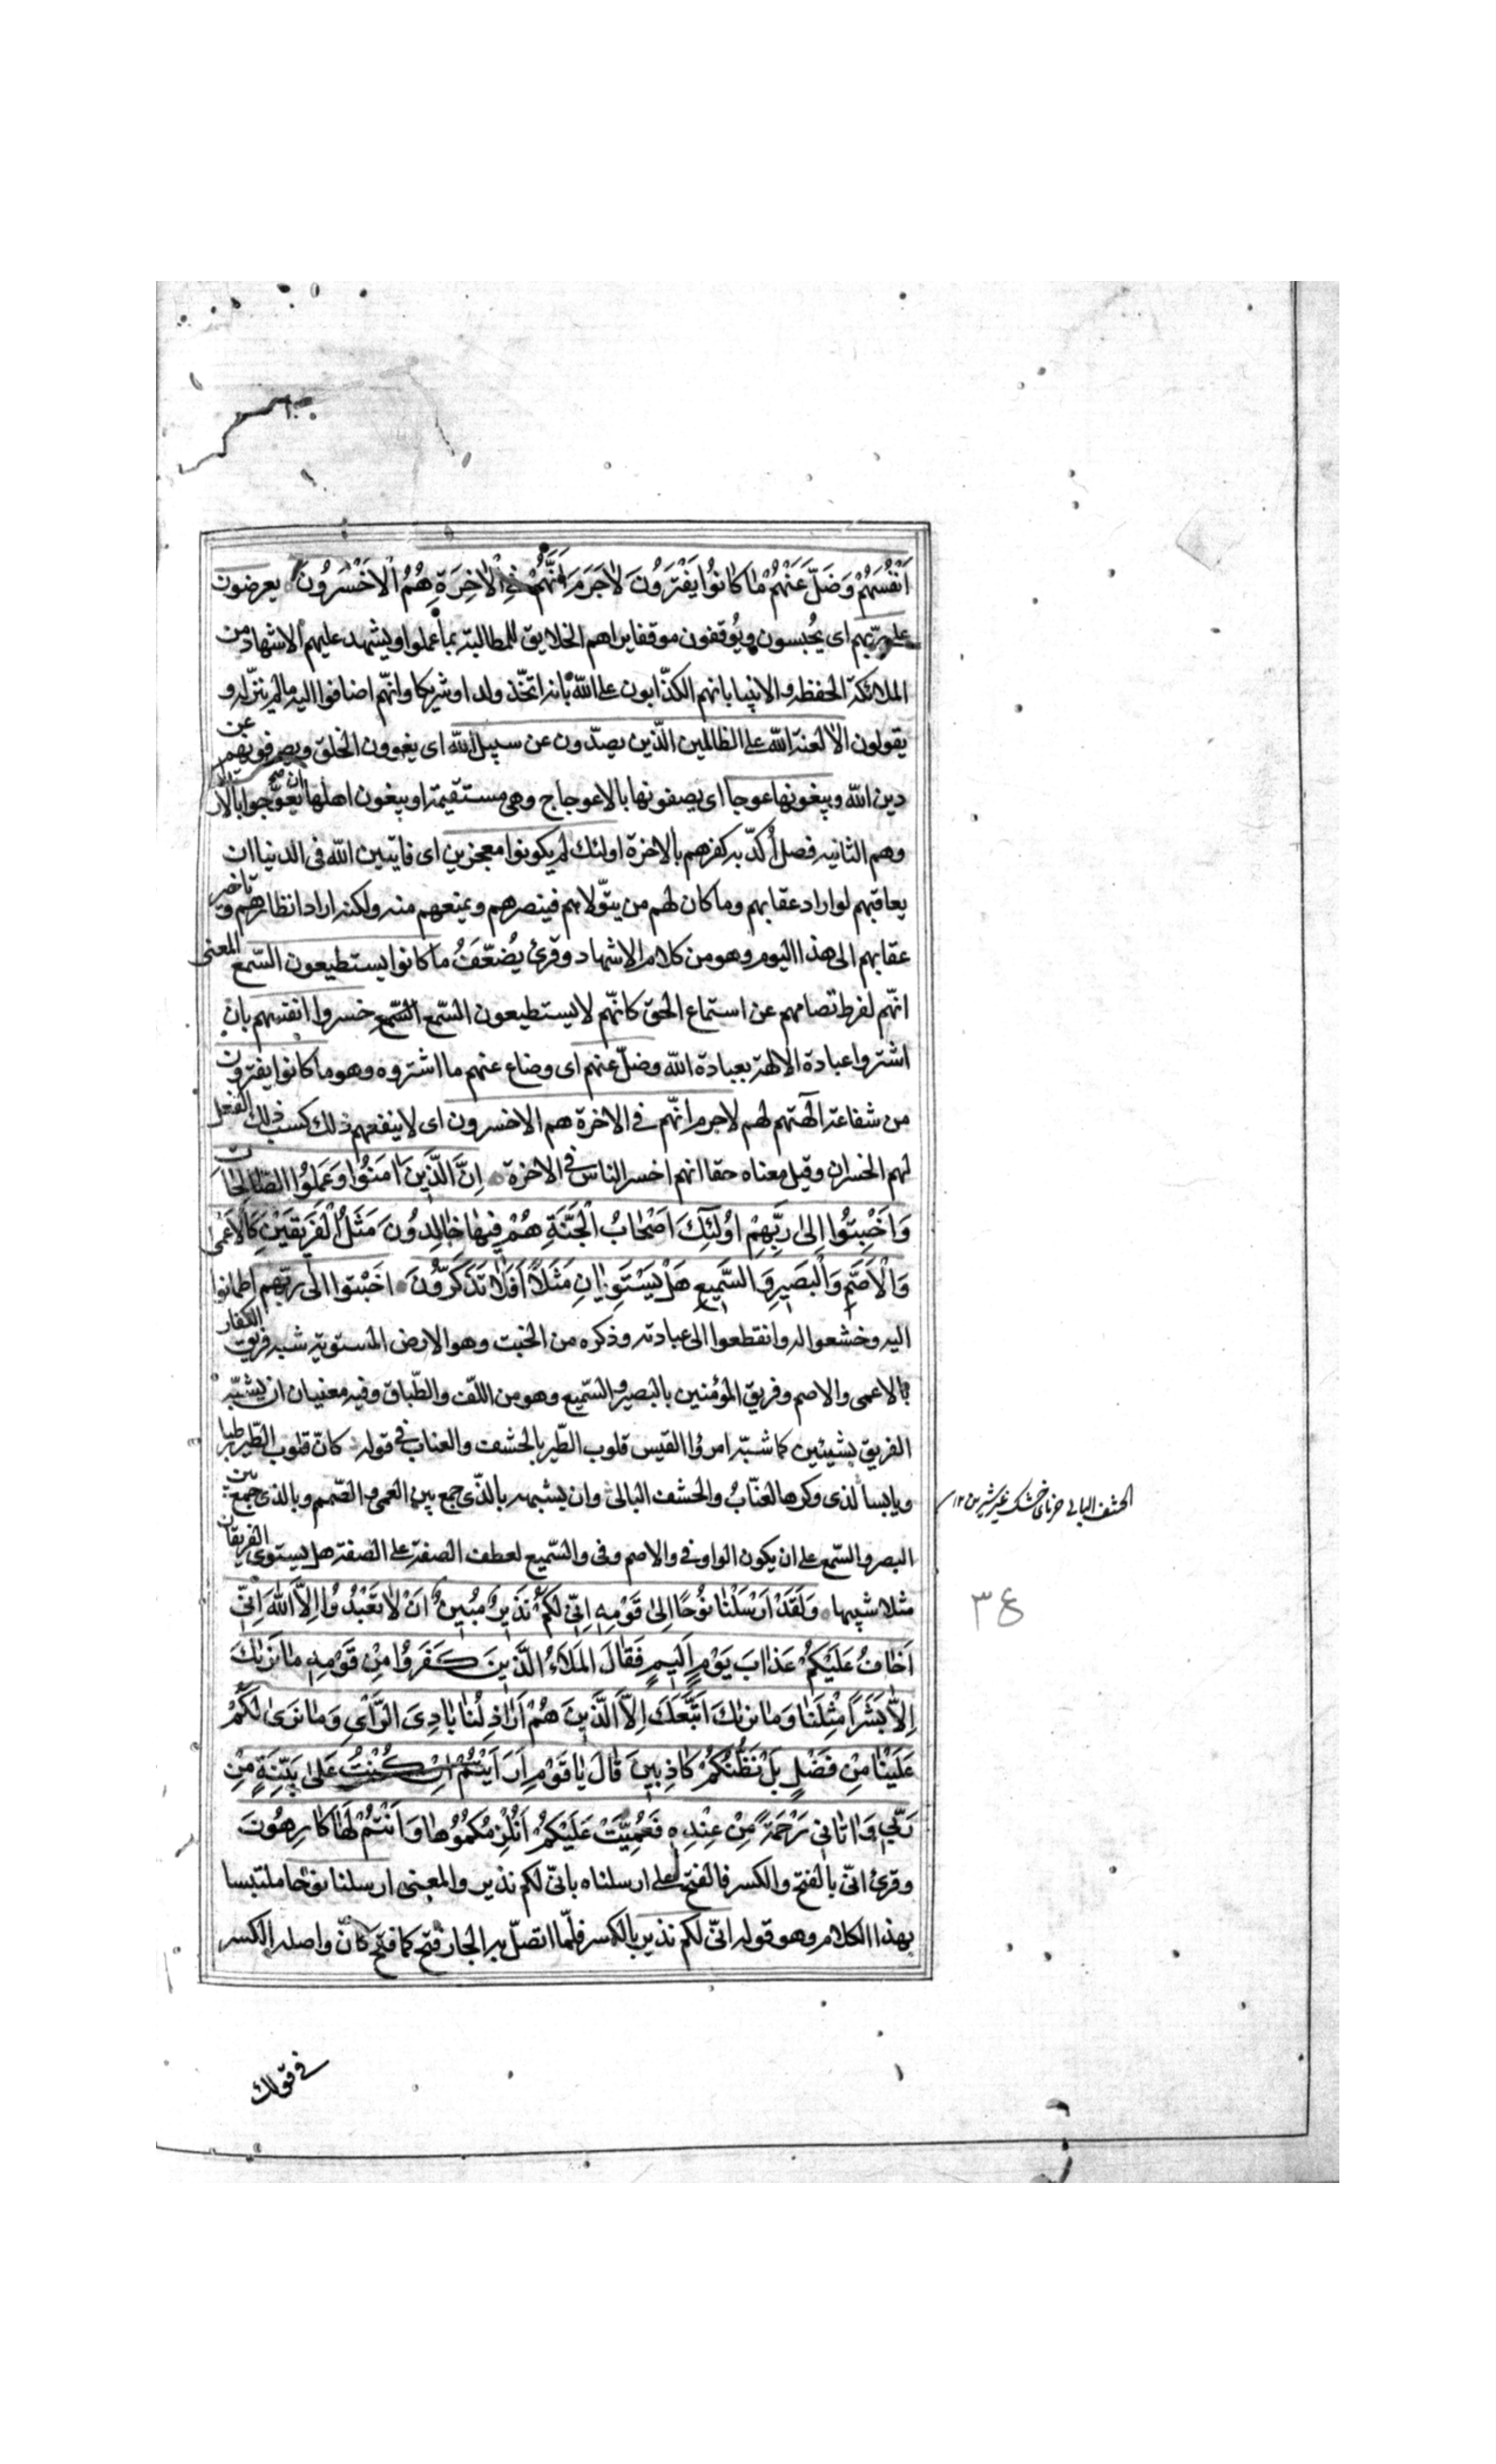 اَنْفُسَهُمْ وَضَلَّ عَنْهُمْ مٰا كٰانُوا يَفْتَرُونَ لٰا جَرَمَ اَنَّهُمْ فِي الْاٰخِرَةِ هُمُ الْاَخْسَرُونَ يعرضون
على ربّهم اى يُحبسون ويُوقفون موقفا يراهم الخلايق للمطالبة بما عملوا ويشهد عليهم الاشهاد من
الملائكة الحفظه والانبيا بانهم الكذّابون على اللّه بانه اتّخذ ولدا وشريكا وانّهم اضافوا اليه مالم ينزله و
يقولون الا لعنة اللّه على الظالمين الّذين يصدّون عن سبيل اللّه اى يغوون الخلق ويصرفونهم عن
دين اللّه ويبغونها عوجا اى يصفونها بالاعوجاج وهى مستقيمة او يبغون اهلها ان يعوّجوا بالار
وهم الثانيه فصل اُكدّ به كفرهم بالاخرة اولئك لم يكونوا معجزين اى فايتين اللّه فى الدنيا ان
يعاقبهم لو اراد عقابهم وما كان لهم من يتّولاهم فينصرهم ويمنعهم منه ولكنه اراد انظارهم وتاخير
عقابهم الى هذا اليوم وهو من كلام الاشهاد وقرئ يُضعّفُ ما كانوا يستطيعون السّمع المعنى
انّهم لفرط تصامهم عن استماع الحق كانّهم لا يستطيعون السّمع السّمع خسروا انفسهم بان
اشتروا عبادة الالهة بعبادة اللّه وضلّ عنهم اى وضاع عنهم ما اشتروه وهو ما كانوا يفترون
من شفاعة آلهتهم لهم لاجرم انّهم فى الاخرة هم الاخسرون اى لا ينفعهم ذلك كسب ذلك الفعل
لهم الخسران وقيل معناه حقا انهم اخسر الناس فى الاخرة اِنَّ الَّذِينَ اٰمَنُوا وَعَمِلُوا الصّٰالِحٰاتِ
وَاَخْبَتُوا اِلىٰ رَبِّهِمْ اُولٰئِكَ اَصْحٰابُ الْجَنَّةِ هُمْ فِيهٰا خٰالِدُونَ مَثَلُ الْفَرِيقَيْنِ كَالْاَعْمىٰ
وَالْاَصَمِّ وَالْبَصِيرِ وَالسَّمِيعِ هَلْ يَسْتَوِيٰانِ مَثَلًا اَفَلٰا تَذَكَّرُونَ اخبتوا الى ربّهم اطمانوا
اليه وخشعوا له وانقطعوا الى عبادته وذكره من الخبت وهو الارض المستوية شبه فريق الكفار
بالاعمى والاصم وفريق المؤمنين بالبصير والسّميع وهو من اللّف والطّباق وفيه معنيان ان يشبّه
الفريق بشيئين كما شبّه امرؤا القيس قلوب الطّير بالحشف والعناب فى قوله كانّ قلوب الطّير رطبا
ويابسا لذى وكرها العنّابُ والحشف البالى وان يشبهه بالّذى جمع بين العمى والصّمم وبالذى جمع بين
البصر والسّمع على ان يكون الواو فى والاصم وفى والسّميع لعطف الصفة على الصفة هل يستوى الفريقان
مثلا شبيها وَلَقَدْ اَرْسَلْنٰا نُوحًا اِلىٰ قَوْمِهِ اِنّي لَكُمْ نَذِيرٌ مُبِينٌ اَنْ لٰا تَعْبُدُوا اِلَّا اللّٰهَ اِنّي
اَخٰافُ عَلَيْكُمْ عَذٰابَ يَوْمٍ اَلِيمٍ فَقٰالَ الْمَلَاُ الَّذِينَ كَفَرُوا مِنْ قَوْمِهِ مٰا نَرٰيكَ
اِلَّا بَشَرًا مِثْلَنٰا وَمٰا نَرٰيكَ اتَّبَعَكَ اِلَّا الَّذِينَ هُمْ اَرٰاذِلُنٰا بٰادِىَ الرَّاْىِ وَمٰا نَرىٰ لَكُمْ
عَلَيْنٰا مِنْ فَضْلٍ بَلْ نَظُنُّكُمْ كٰاذِبِينَ قٰالَ يٰا قَوْمِ اَرَاَيْتُمْ اِنْ كُنْتُ عَلىٰ بَيِّنَةٍ مِنْ
رَبّي وَاٰتٰاني رَحْمَةً مِنْ عِنْدِهِ فَعُمِّيَتْ عَلَيْكُمْ اَنُلْزِمُكُمُوهٰا وَاَنْتُمْ لَهٰا كٰارِهُونَ
وقرئ انّى بالفتح والكسر فالفتح على ارسلناه بانّى لكم نذير والمعنى ارسلنا نوحا ملتبسا
بهذا الكلام وهو قوله انّى لكم نذير بالكسر فلمّا اتصل به الجار فتح كما فتح كانّ واصله الكسر
الحشف البالى خرماى خشك غير شيرين ١٢
٣٤
فى قولك